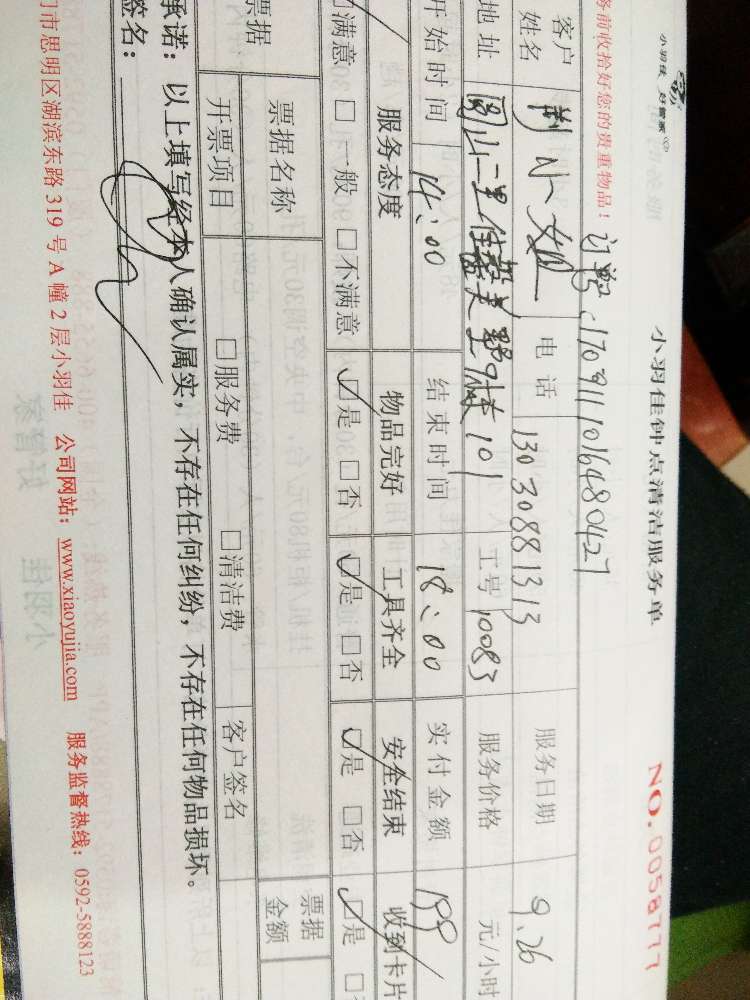 小羽佳 好管家
小羽佳钟点清洁服务单
NO.0058777
务前收拾好您的贵重物品! 订单: 1709111016480427
客户姓名 小姐 电话 13030881313 服务日期 9.26
地址 圆山二里 101 工号 10083 服务价格 元/小时
开始时间 14:00 结束时间 18:00 实付金额 199
服务态度 物品完好 工具齐全 安全结束 收到卡片
满意 □一般 □不满意 □是 □否 □是 □否 □是 □否 □是 □
票据 票据名称 票据金额
开票项目 □服务费 □清洁费 客户签名
承诺: 以上填写经本人确认属实,不存在任何纠纷,不存在任何物品损坏。
签名:
门市思明区湖滨东路 319 号 A 幢 2 层小羽佳 公司网站: www.xiaoyujia.com 服务监督热线: 0592-5888123